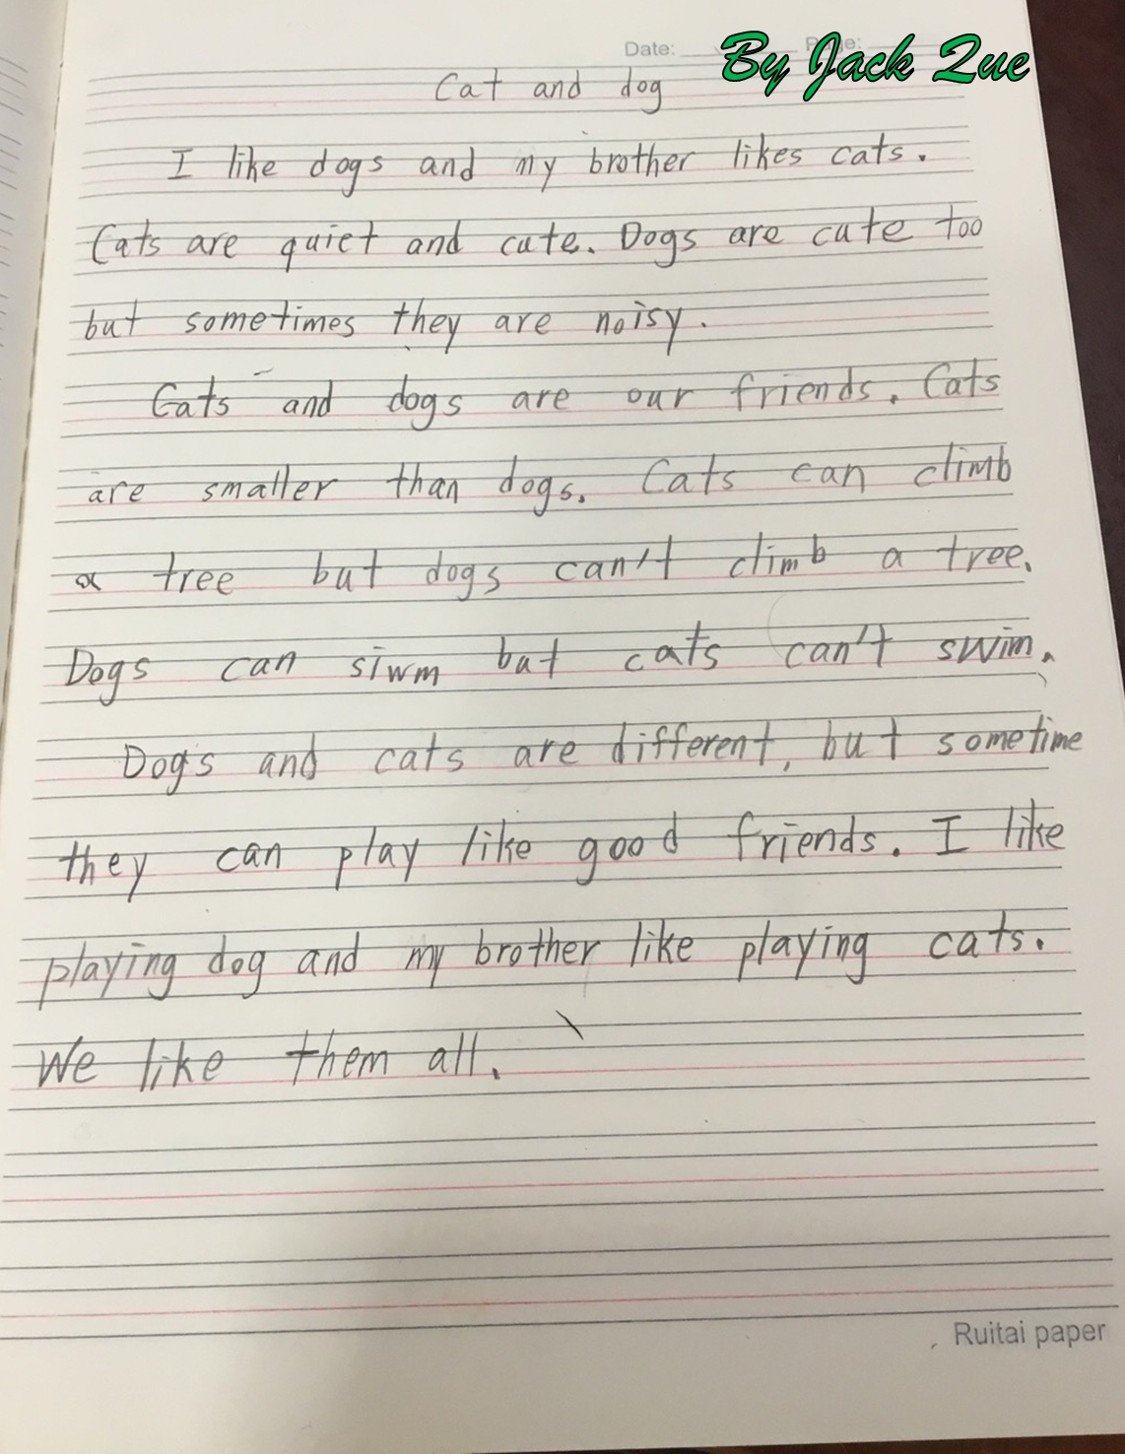 Date: Page:
By Jack Que
Cat and dog
I like dogs and my brother likes cats.
Cats are quiet and cute. Dogs are cute too
but sometimes they are noisy.
Cats and dogs are our friends. Cats
are smaller than dogs. Cats can climb
a tree but dogs can't climb a tree.
Dogs can siwm but cats can't swim.
Dogs and cats are different, but sometime
they can play like good friends. I like
playing dog and my brother like playing cats.
We like them all.
Ruitai paper